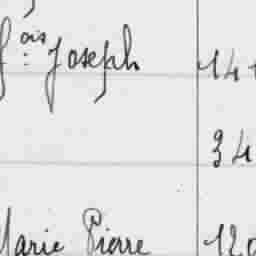 fois Joseph 141
34
Marie Pierre 120